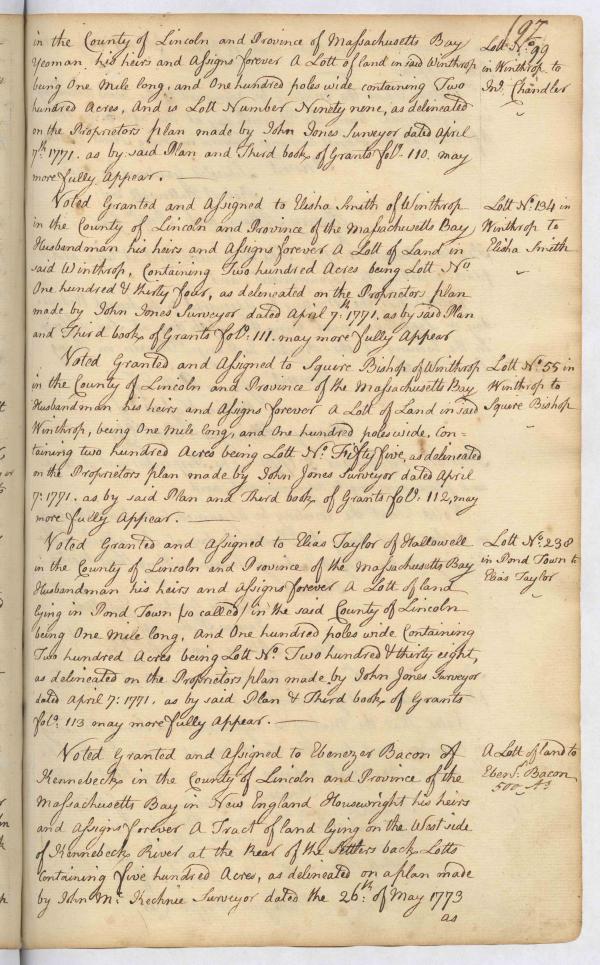 197
in the County of Lincoln and Province of Massachusetts Bay
Yeoman his heirs and Assigns forever A Lott of land in said Winthrop
being One Mile long, and One hundred poles wide containing Two
hundred Acres, And is Lott Number Ninety nine, as delineated
on the Proprietors plan made by John Jones Surveyor dated April
7th: 1771. as by said Plan and Third book of Grants fol°. 110. may
more fully Appear.
Lott N°. 99
in Winthrop to
Jn°. Chandler
Voted Granted and Assigned to Elisha Smith of Winthrop
in the County of Lincoln and Province of the Massachusetts Bay
Husbandman his heirs and Assigns forever A Lott of Land in
said Winthrop, Containing Two hundred Acres being Lott N°
One hundred & thirty four, as delineated on the Proprietors plan
made by John Jones Surveyor dated April 7th: 1771. as by said Plan
and Third book of Grants fol°: 111. may more fully Appear
Lott N°. 134 in
Winthrop to
Elisha Smith
Voted Granted and Assigned to Squire Bishop of Winthrop
in the County of Lincoln and Province of the Massachusetts Bay
Husbandman his heirs and Assigns forever A Lott of Land in said
Winthrop, being One Mile long, and One hundred poles wide. Con-
taining two hundred Acres being Lott N°. Fifty five, as delineated
on the Proprietors plan made by John Jones Surveyor dated April
7: 1771. as by said Plan and Third book of Grants fol°: 112, may
more fully Appear.
Lott N°. 55 in
Winthrop to
Squire Bishop
Voted Granted and Assigned to Elias Taylor of Hallowell
in the County of Lincoln and Province of the Massachusetts Bay
Husbandman his heirs and Assigns forever A Lott of land
lying in Pond Town (so called) in the said County of Lincoln
being One Mile long, And One hundred poles wide Containing
Two hundred Acres being Lott N°. Two hundred & thirty eight,
as delineated on the Proprietors plan made by John Jones Surveyor
dated April 7: 1771. as by said Plan & Third book of Grants
fol°: 113 may more fully Appear.
Lott N°. 238
in Pond Town to
Elias Taylor
Voted Granted and Assigned to Ebenezer Bacon of
Kennebeck in the County of Lincoln and Province of the
Massachusetts Bay in New England Housewright his heirs
and Assigns forever A Tract of land lying on the West side
of Kennebeck River at the Rear of the Settlers back Lotts
Containing five hundred Acres, as delineated on a plan made
by John Mc. Kechnie Surveyor dated the 26th: of May 1773
as
A Lott of land to
Ebenr. Bacon
500 As